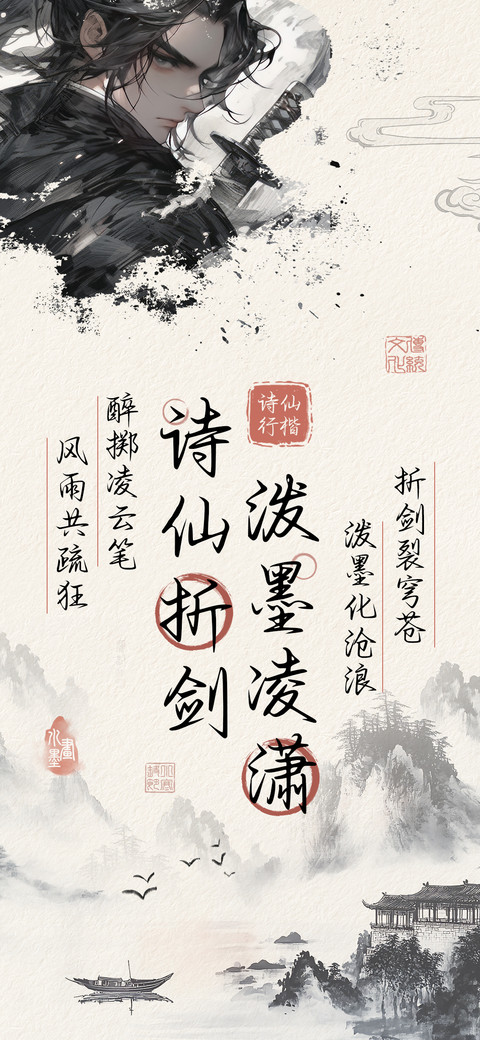 傳統
文化
折剑裂穹苍
泼墨化沧浪
诗仙
行楷
泼墨凌潇
诗仙折剑
醉掷凌云笔
风雨共疏狂
水墨畫